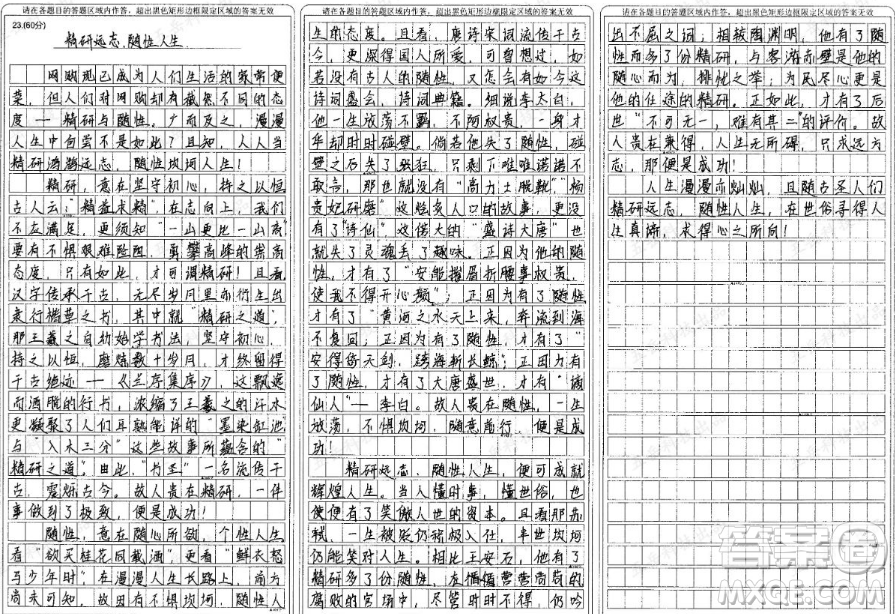 请在各题目的答题区域内作答，超出黑色矩形边框限定区域的答案无效
23.(60分)
精研远志，随性人生
网购现已成为人们生活的家常便
菜，但人们对网购却有截然不同的态
度——精研与随性。少而及之，漫漫
人生中向尝不是如此？且知，人人当
精研鸿鹄远志，随性坎坷人生！
精研，意在坚守初心，持之以恒
古人云："精益求精"，在志向上，我们
不应满足，更须知"一山更比一山高"
要有不惧艰难险阻，勇攀高峰的崇高
态度，只有如此，才可谓精研！且看
汉字传承千古，无尽岁月里亦衍生出
隶行楷草之书，其中就"精研之道"，
那王羲之自幼始学书法，坚守初心，
持之以恒，磨炼数十岁月，才终留得
千古绝迹——《兰亭集序》，这飘逸
而洒脱的行书，浓缩了王羲之的汗水
更凝聚了人们耳熟能详的"墨染缸池
与"入木三分"这些故事所蕴含的"
精研之道"。由此，"书圣"一名流传千
古，震烁古今。故人贵在精研，一件
事做到了极致，便是成功！
随性，意在随心所欲，个性人生
看"欲买桂花同载酒"，更看"鲜衣怒
马少年时"，在漫漫人生长路上，前方
尚未可知，故因有不惧坎坷，随性人
请在各题目的答题区域内作答，超出黑色矩形边框限定区域的答案无效
生的态度。且看，唐诗宋词流传千古
今，更深得国人所爱，可曾想过，如
若没有古人的随性，又怎会有如今这
诗词盛会，诗词典籍。细说李太白，
他一生放荡不羁，不阿权贵，一身才
华却时时碰壁。倘若他失了随性，碰
壁之后失了张狂，只剩下唯唯诺诺不
敢言，那也就没有"高力士脱靴""杨
贵妃研磨"这烩炙人口的故事，更没
有"诗仙"这偌大的"盛诗大唐"也
就失了灵魂丢了趣味。正因为他的随
性，才有了"安能摧眉折腰事权贵，
使我不得开心颜"；正因为有了随性
才有了"黄河之水天上来，奔流到海
不复回；正因为有了随性，才有了"
安得倚天剑，跨海斩长鲸；正因为有
了随性，才有了大唐盛世，才有"谪
仙人"——李白。故人贵在随性，一生
放荡，不惧坎坷，随意前行，便是成
功！
精研远志，随性人生，便可成就
辉煌人生。当人懂时事，懂世俗，也
便便有了笑傲人世的资本。且看那苏
轼，一生被贬仍豁极入仕，半世坎坷
仍能笑对人生。相比王安石，他有了
精研多了份随性，在循循营营局局的
腐败的官场中，尽管时时不得志仍吟
请在各题目的答题区域内作答，超出黑色矩形边框限定区域的答案无效
出不屈之词；相较陶渊明，他有了随
性而多了份精研，与客游赤壁是他的
随心而为，排忧之举；为民尽心更是
他的仕途的精研。正如此，才有了后
世"不可无一，难有其二"的评价。故
人贵在兼得，人生无所碍，只求远方
志，那便是成功！
人生漫漫亦灿灿，且随古圣人们
精研远志，随性人生，在世俗寻得人
生真谛，求得心之所向！
答案圈
MXQE.COM